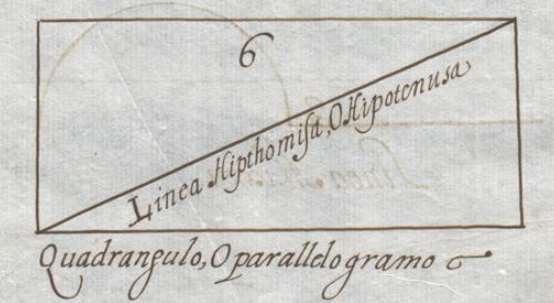 6
Linea Hipthomisa, O Hipotenusa
Quadrangulo, O parallelogramo